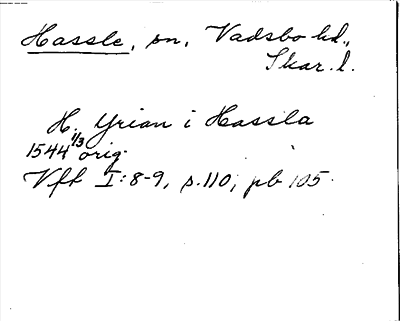 Hassle, sn, Vadsbo hd.,
Skar. l.
H. Yrian i Hassla
1544 1/3 orig.
Vft I:8-9, s.110, pb 105